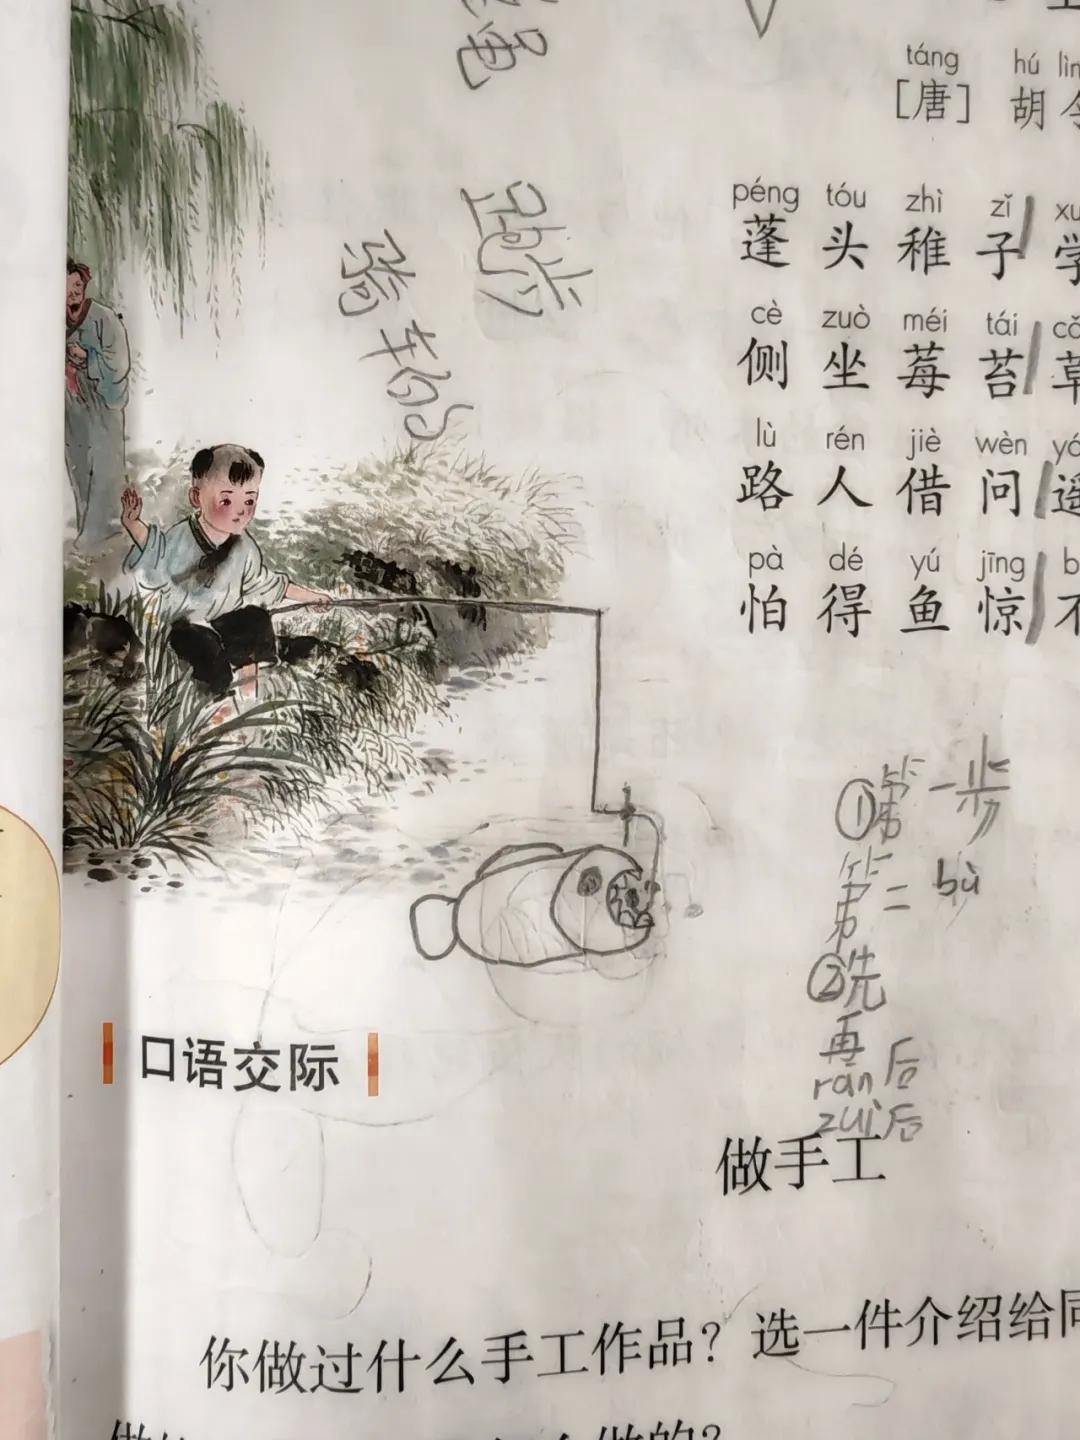 táng hú lìn
[唐] 胡令
péng tóu zhì zǐ
蓬头稚子学
cè zuò méi tái
侧坐莓苔草
lù rén jiè wèn
路人借问遥
pà dé yú jīng
怕得鱼惊不
电
跑步
骑车的
①第一步
第二 bù
②先
再
rán后
zuì后
口语交际
做手工
你做过什么手工作品？选一件介绍给同
做的？